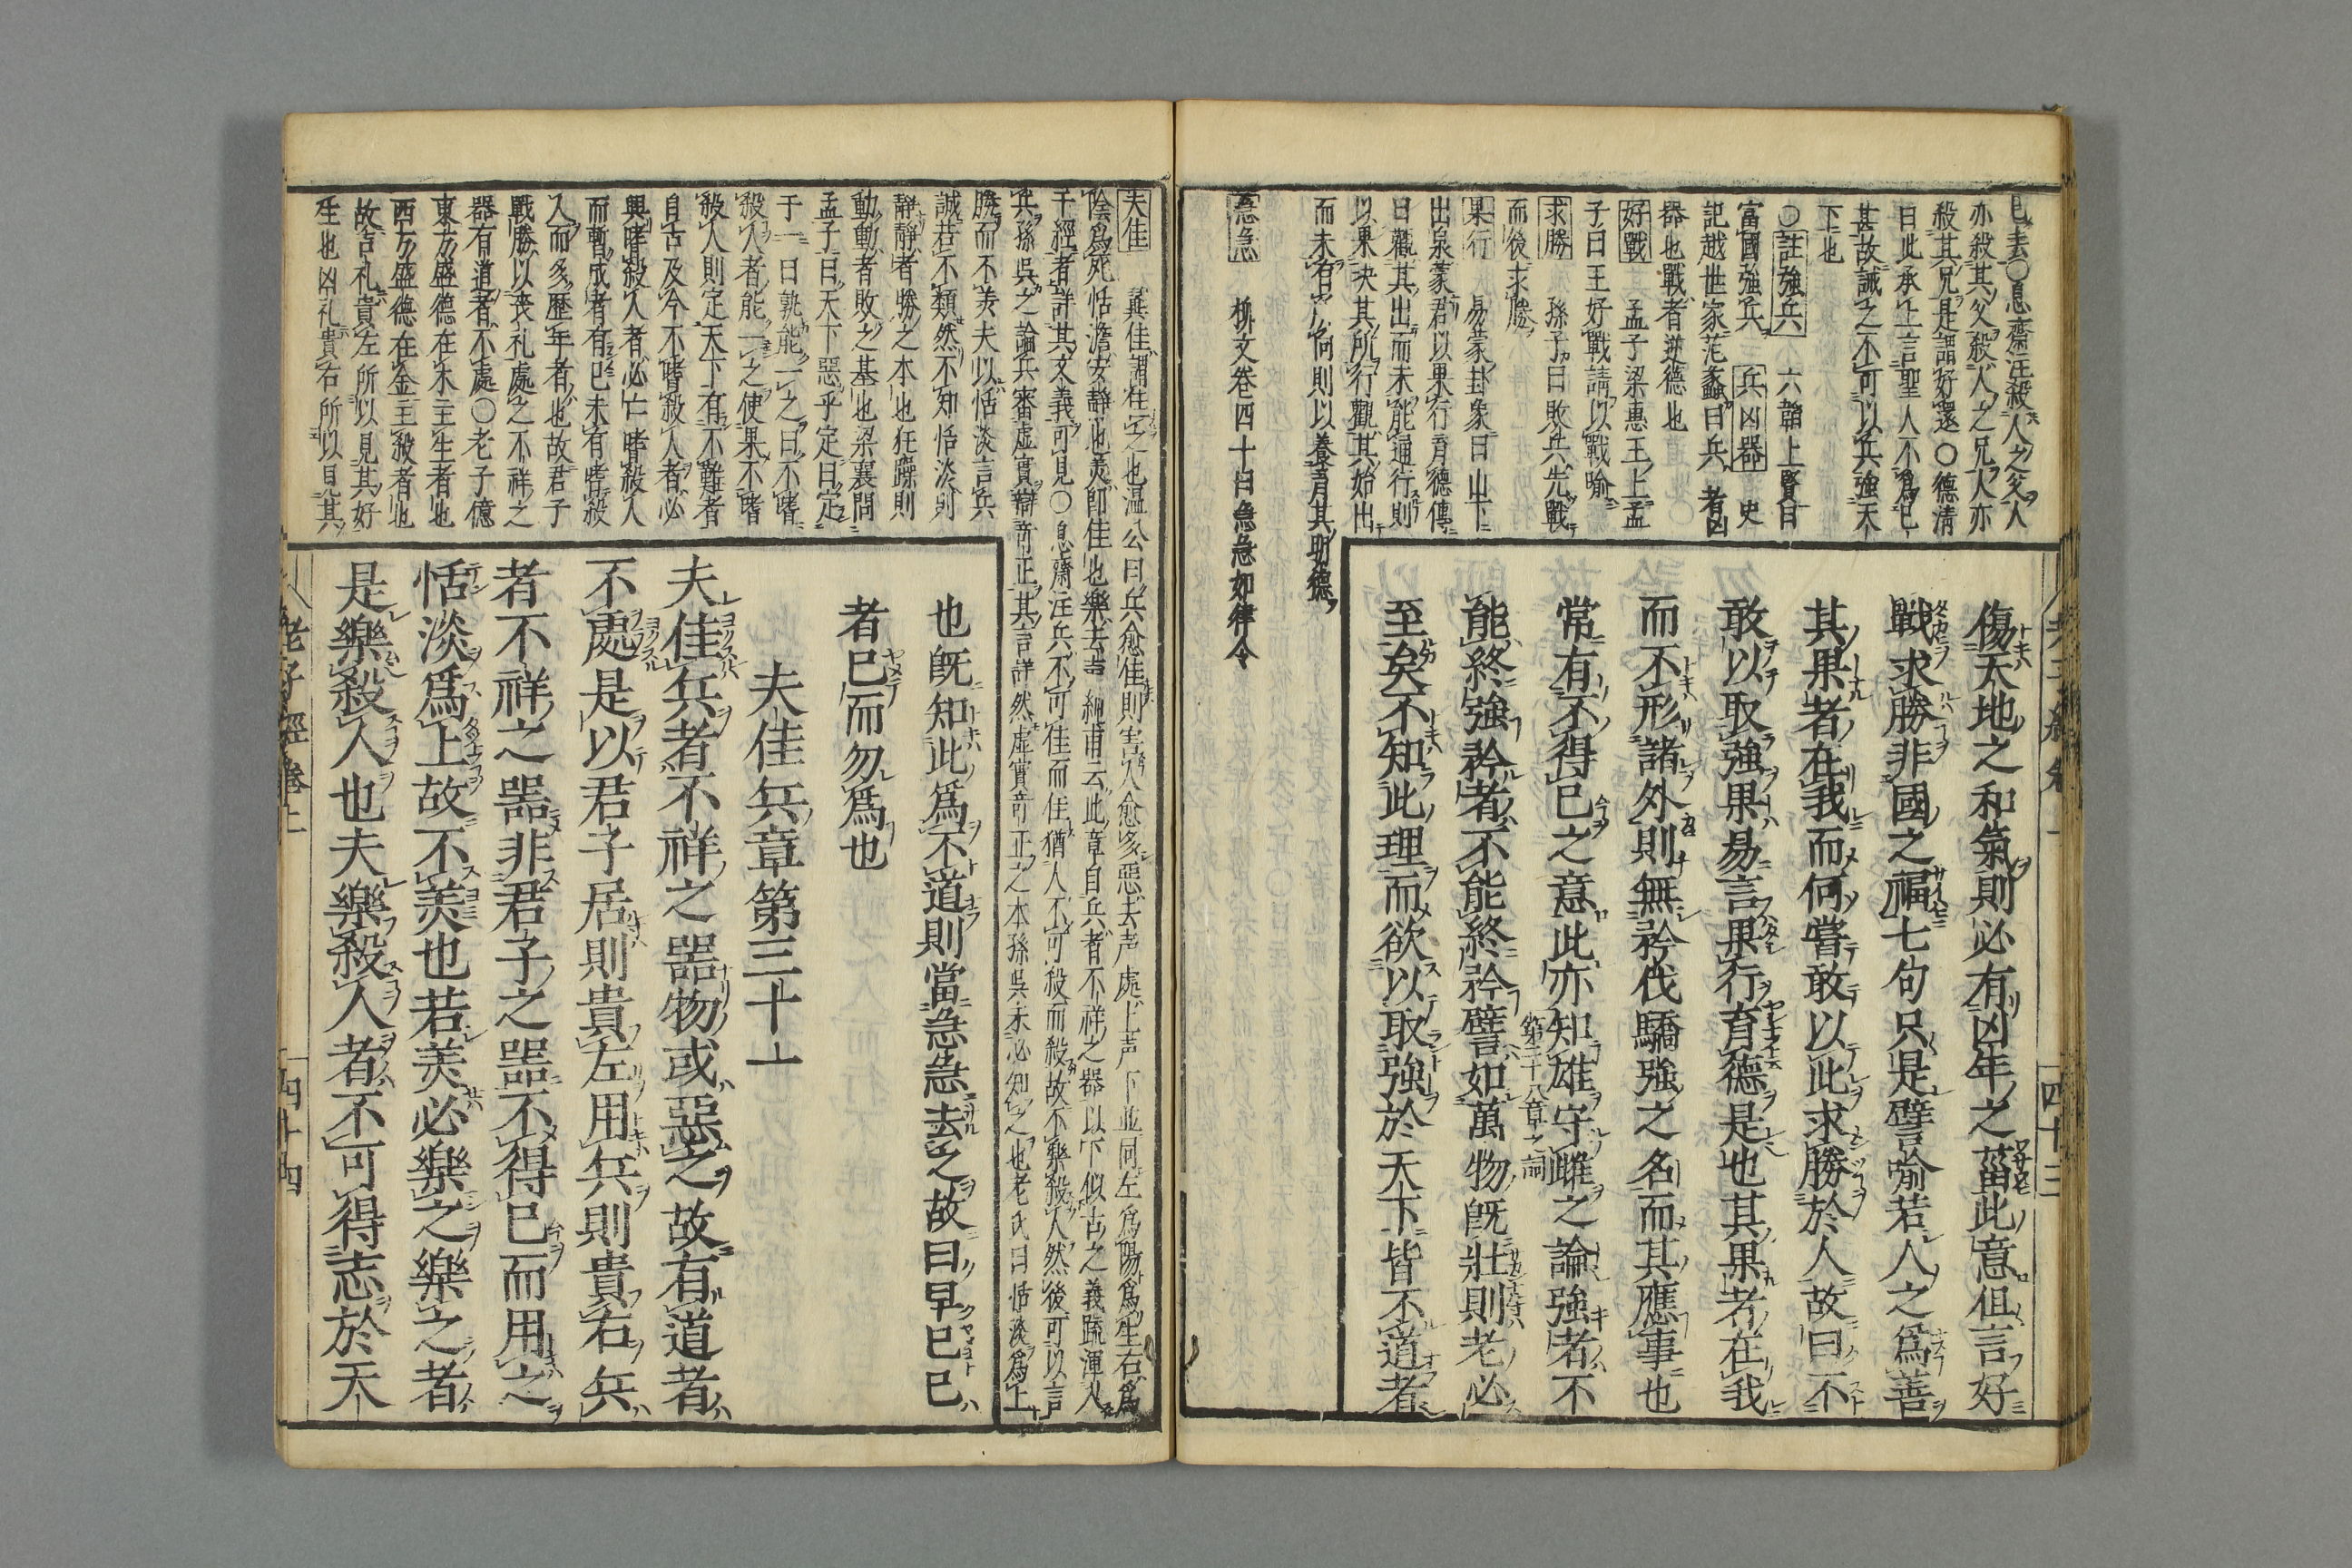 已去○息齋注殺人之父人
亦殺其父殺人之兄人亦
殺其兄是謂好還○德清
曰此承上言聖人不爲已
甚故誡之不可以兵強天
下也
○註強兵 六韜上賢曰
富國強兵 兵凶器 史
記越世家范蠡曰兵者凶
器也戰者逆德也
好戰 孟子梁惠王上孟
子曰王好戰請以戰喻
求勝 孫子曰敗兵先戰
而後求勝
果行 易蒙卦象曰山下
出泉蒙君以果行育德傳
曰觀其出而未能通行則
以果决其所行觀其始出
而未有所向則以養育其明德
急急 柳文卷四十曰急急如律令
傷天地之和氣則必有凶年之菑此意但言好
戰求勝非國之福七句只是譬喻若人之爲善
其果者在我而何嘗敢以此求勝於人故曰不
敢以取強果易言果行育德是也其果者在我
而不形諸外則無矜伐驕強之名而其應事也
常有不得已之意此亦知雄守雌之論強者不
第二十八章之詞
能終強矜者不能終矜譬如萬物旣壯則老必
至矣不知此理而欲以取強於天下皆不道者
四十三
夫佳 冀佳謂佳之也温公曰兵愈佳則害人愈多惡去声處上声下並同左爲陽爲生右爲
陰爲死恬澹安静也美卽佳也樂去声 純甫云此章自兵者不祥之器以下似古之義疏渾入
于經者詳其文義可見○息齋注兵不可佳而佳猶人不可殺而殺故不樂殺人然後可以言
兵孫吳之論兵審虚實辯竒正其言詳然虚實竒正之本孫吳未必知之也老氏曰恬淡爲上
勝而不美夫以恬淡言兵
誠若不類然不知恬淡則
静静者勝之本也狂躁則
動動者敗之基也梁襄問
孟子曰天下惡乎定曰定
于一曰孰能一之曰不嗜
殺人者能一之使果不嗜
殺人則定天下有不難者
自古及今不嗜殺人者必
興嗜殺人者必亡嗜殺人
而暫成者有已未有嗜殺
人而多歷年者也故君子
戰勝以丧礼處之不祥之
器有道者不處○老子億
東方盛德在木主生者也
西方盛德在金主殺者也
故吉礼貴左所以見其好
生也凶礼貴右所以見其
也旣知此爲不道則當急急去之故曰早已已
者已而勿爲也
夫佳兵章第三十一
夫佳兵者不祥之噐物或惡之故有道者
不處是以君子居則貴左用兵則貴右兵
者不祥之噐非君子之噐不得已而用之
恬淡爲上故不美也若美必樂之樂之者
是樂殺人也夫樂殺人者不可得志於天
老子經卷上
四十四